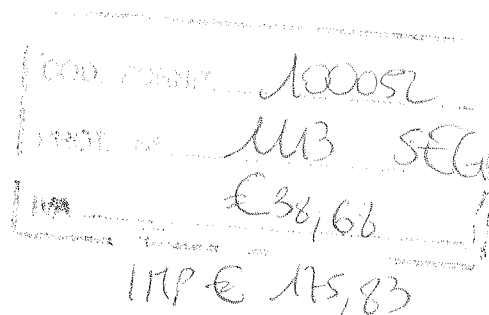 COD. FORNIT. 100052
PROT. N. 1113 SEG
IVA € 38,68
IMP € 175,83